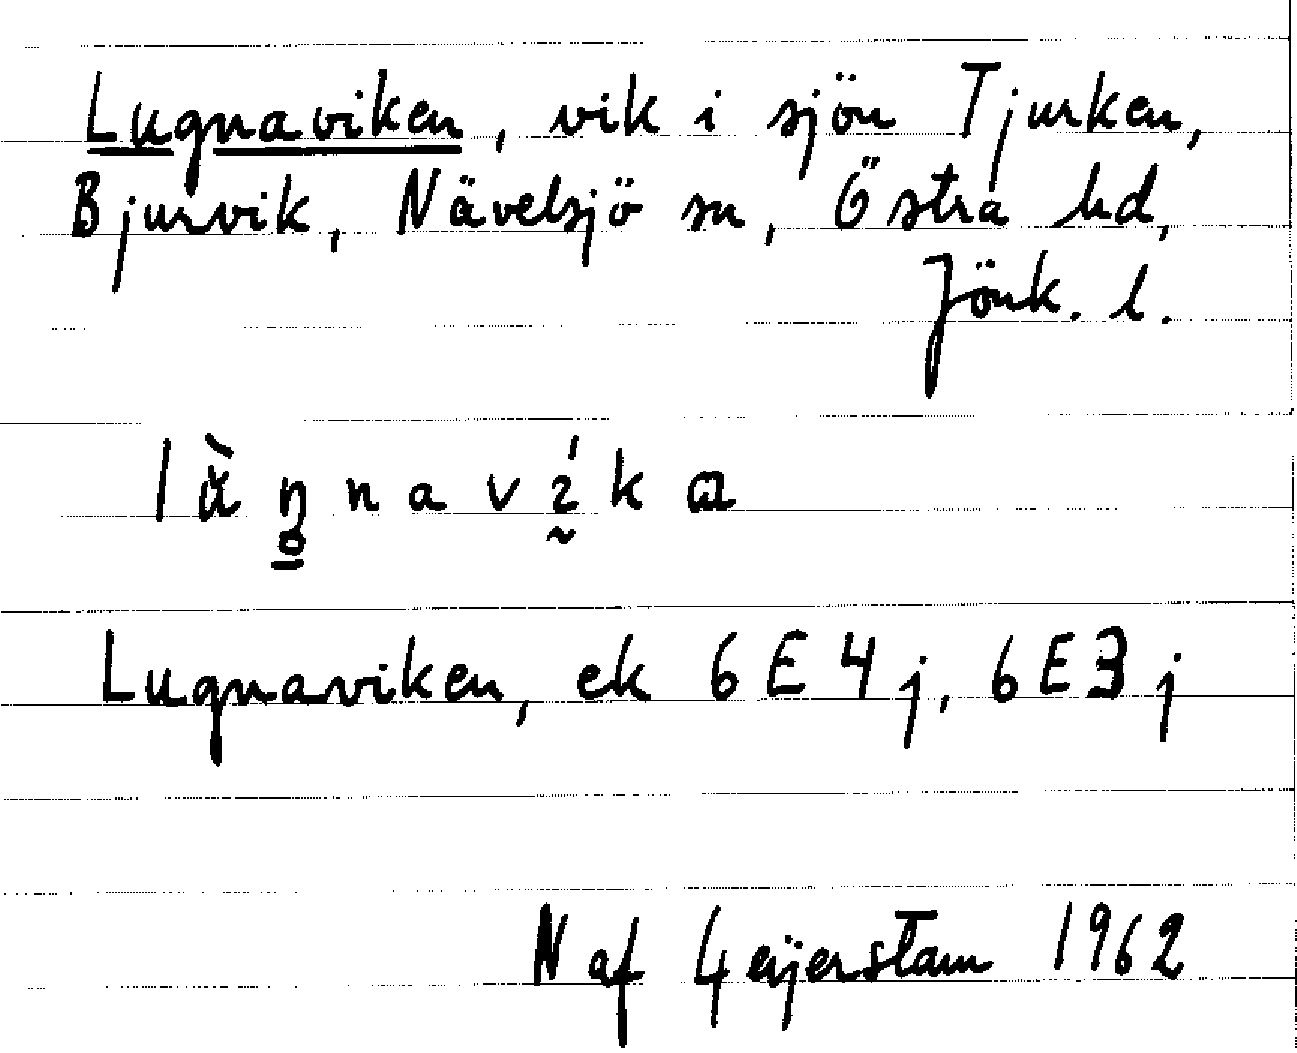 Lugnaviken, vik i sjön Tjurken,
Bjurvik, Nävelsjö sn, Östra hd,
Jönk. l.
Lugnaviken, ek 6E4j, 6E3j
N af Geijerstam 1962